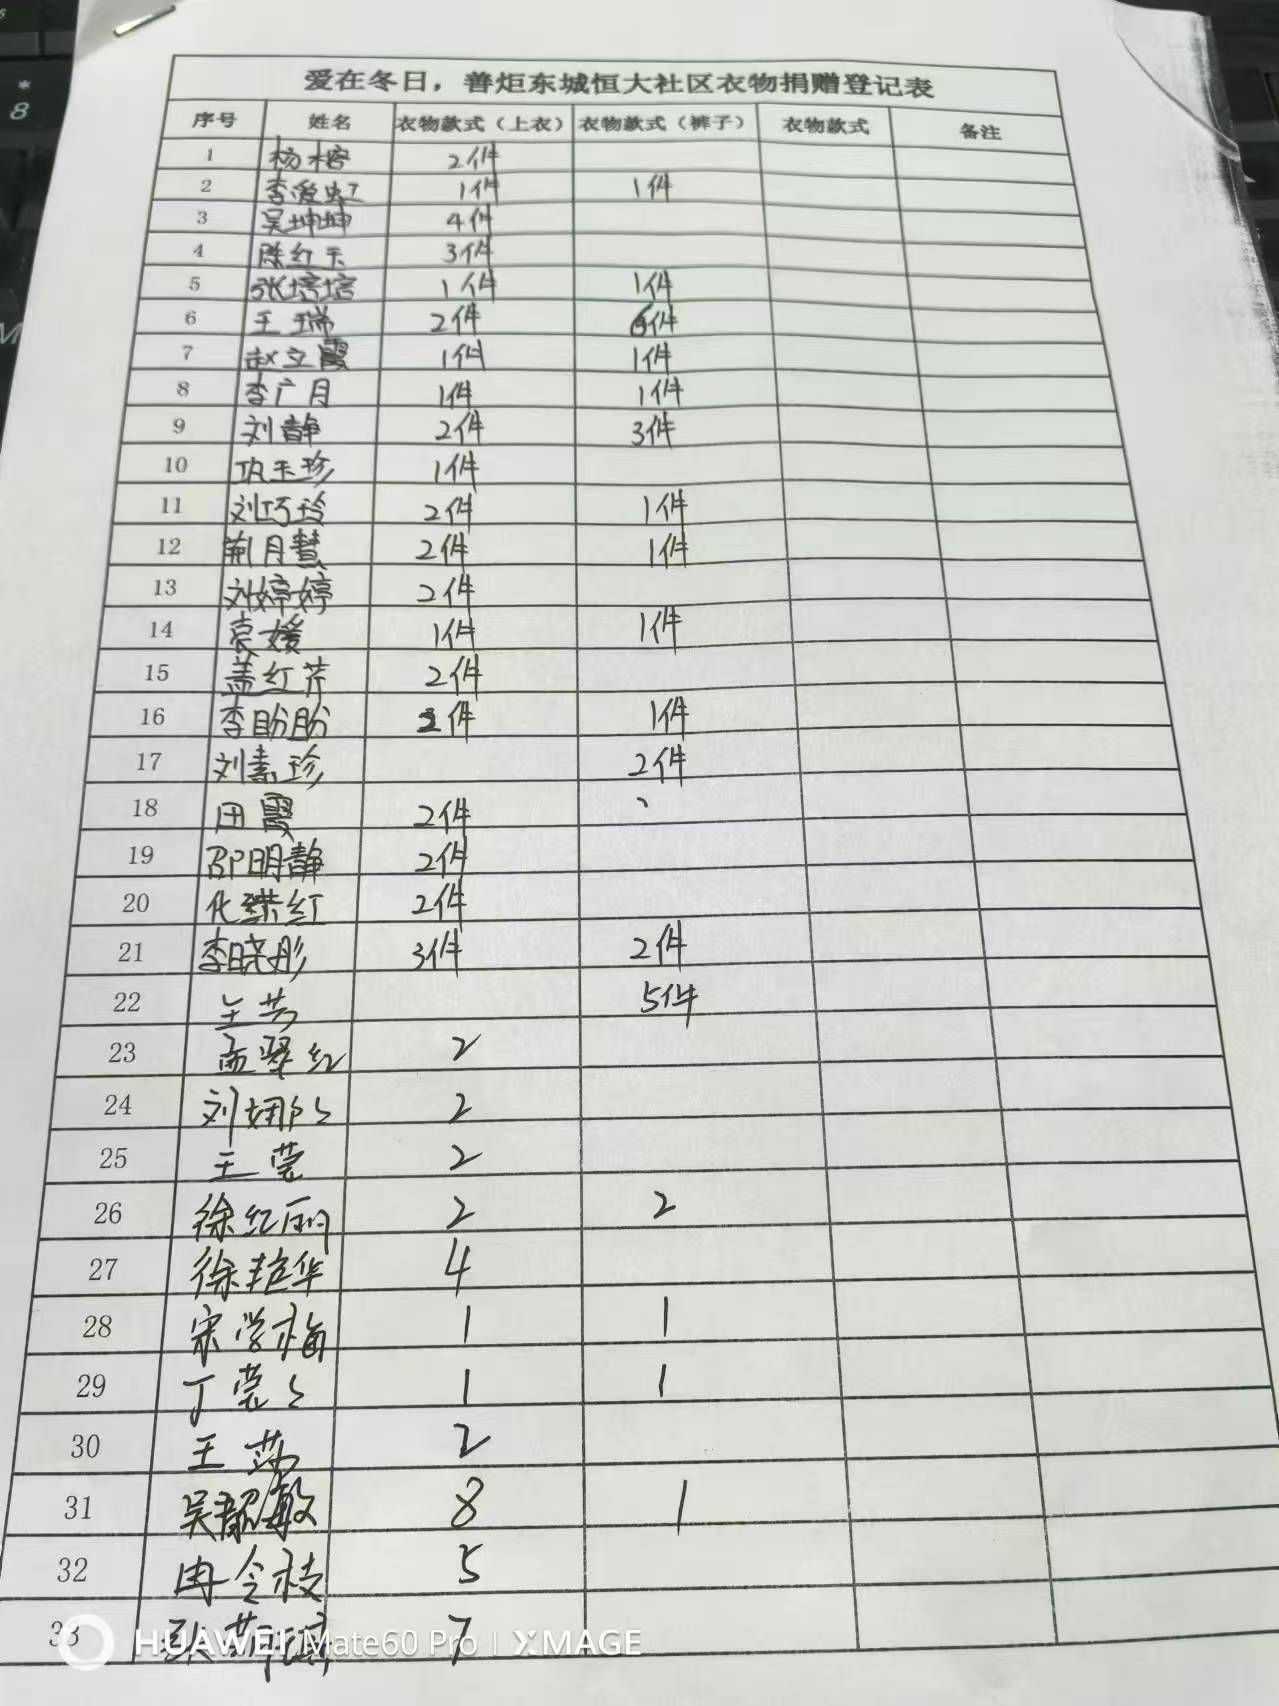 爱在冬日，善炬东城恒大社区衣物捐赠登记表
序号 姓名 衣物款式（上衣） 衣物款式（裤子） 衣物款式 备注
1 杨榕 2件
2 李爱虹 1件 1件
3 吴坤坤 4件
4 陈红玉 3件
5 张培培 1件 1件
6 王瑞 2件 件
7 赵立霞 1件 1件
8 李广月 1件 1件
9 刘静 2件 3件
10 巩玉珍 1件
11 刘巧玲 2件 1件
12 荆月慧 2件 1件
13 刘婷婷 2件
14 袁媛 1件 1件
15 盖红芹 2件
16 李盼盼 件 1件
17 刘素珍 2件
18 田霞 2件
19 邵明静 2件
20 化红 2件
21 李晓彤 3件 2件
22 王芳 5件
23 孟翠红 2
24 刘娜 2
25 王莹 2
26 徐红丽 2 2
27 徐艳华 4
28 宋学梅 1 1
29 丁莹 1 1
30 王莎 2
31 吴敏 8 1
32 冉令枝 5
33 7
HUAWEI Mate60 Pro | XMAGE
*
8
M